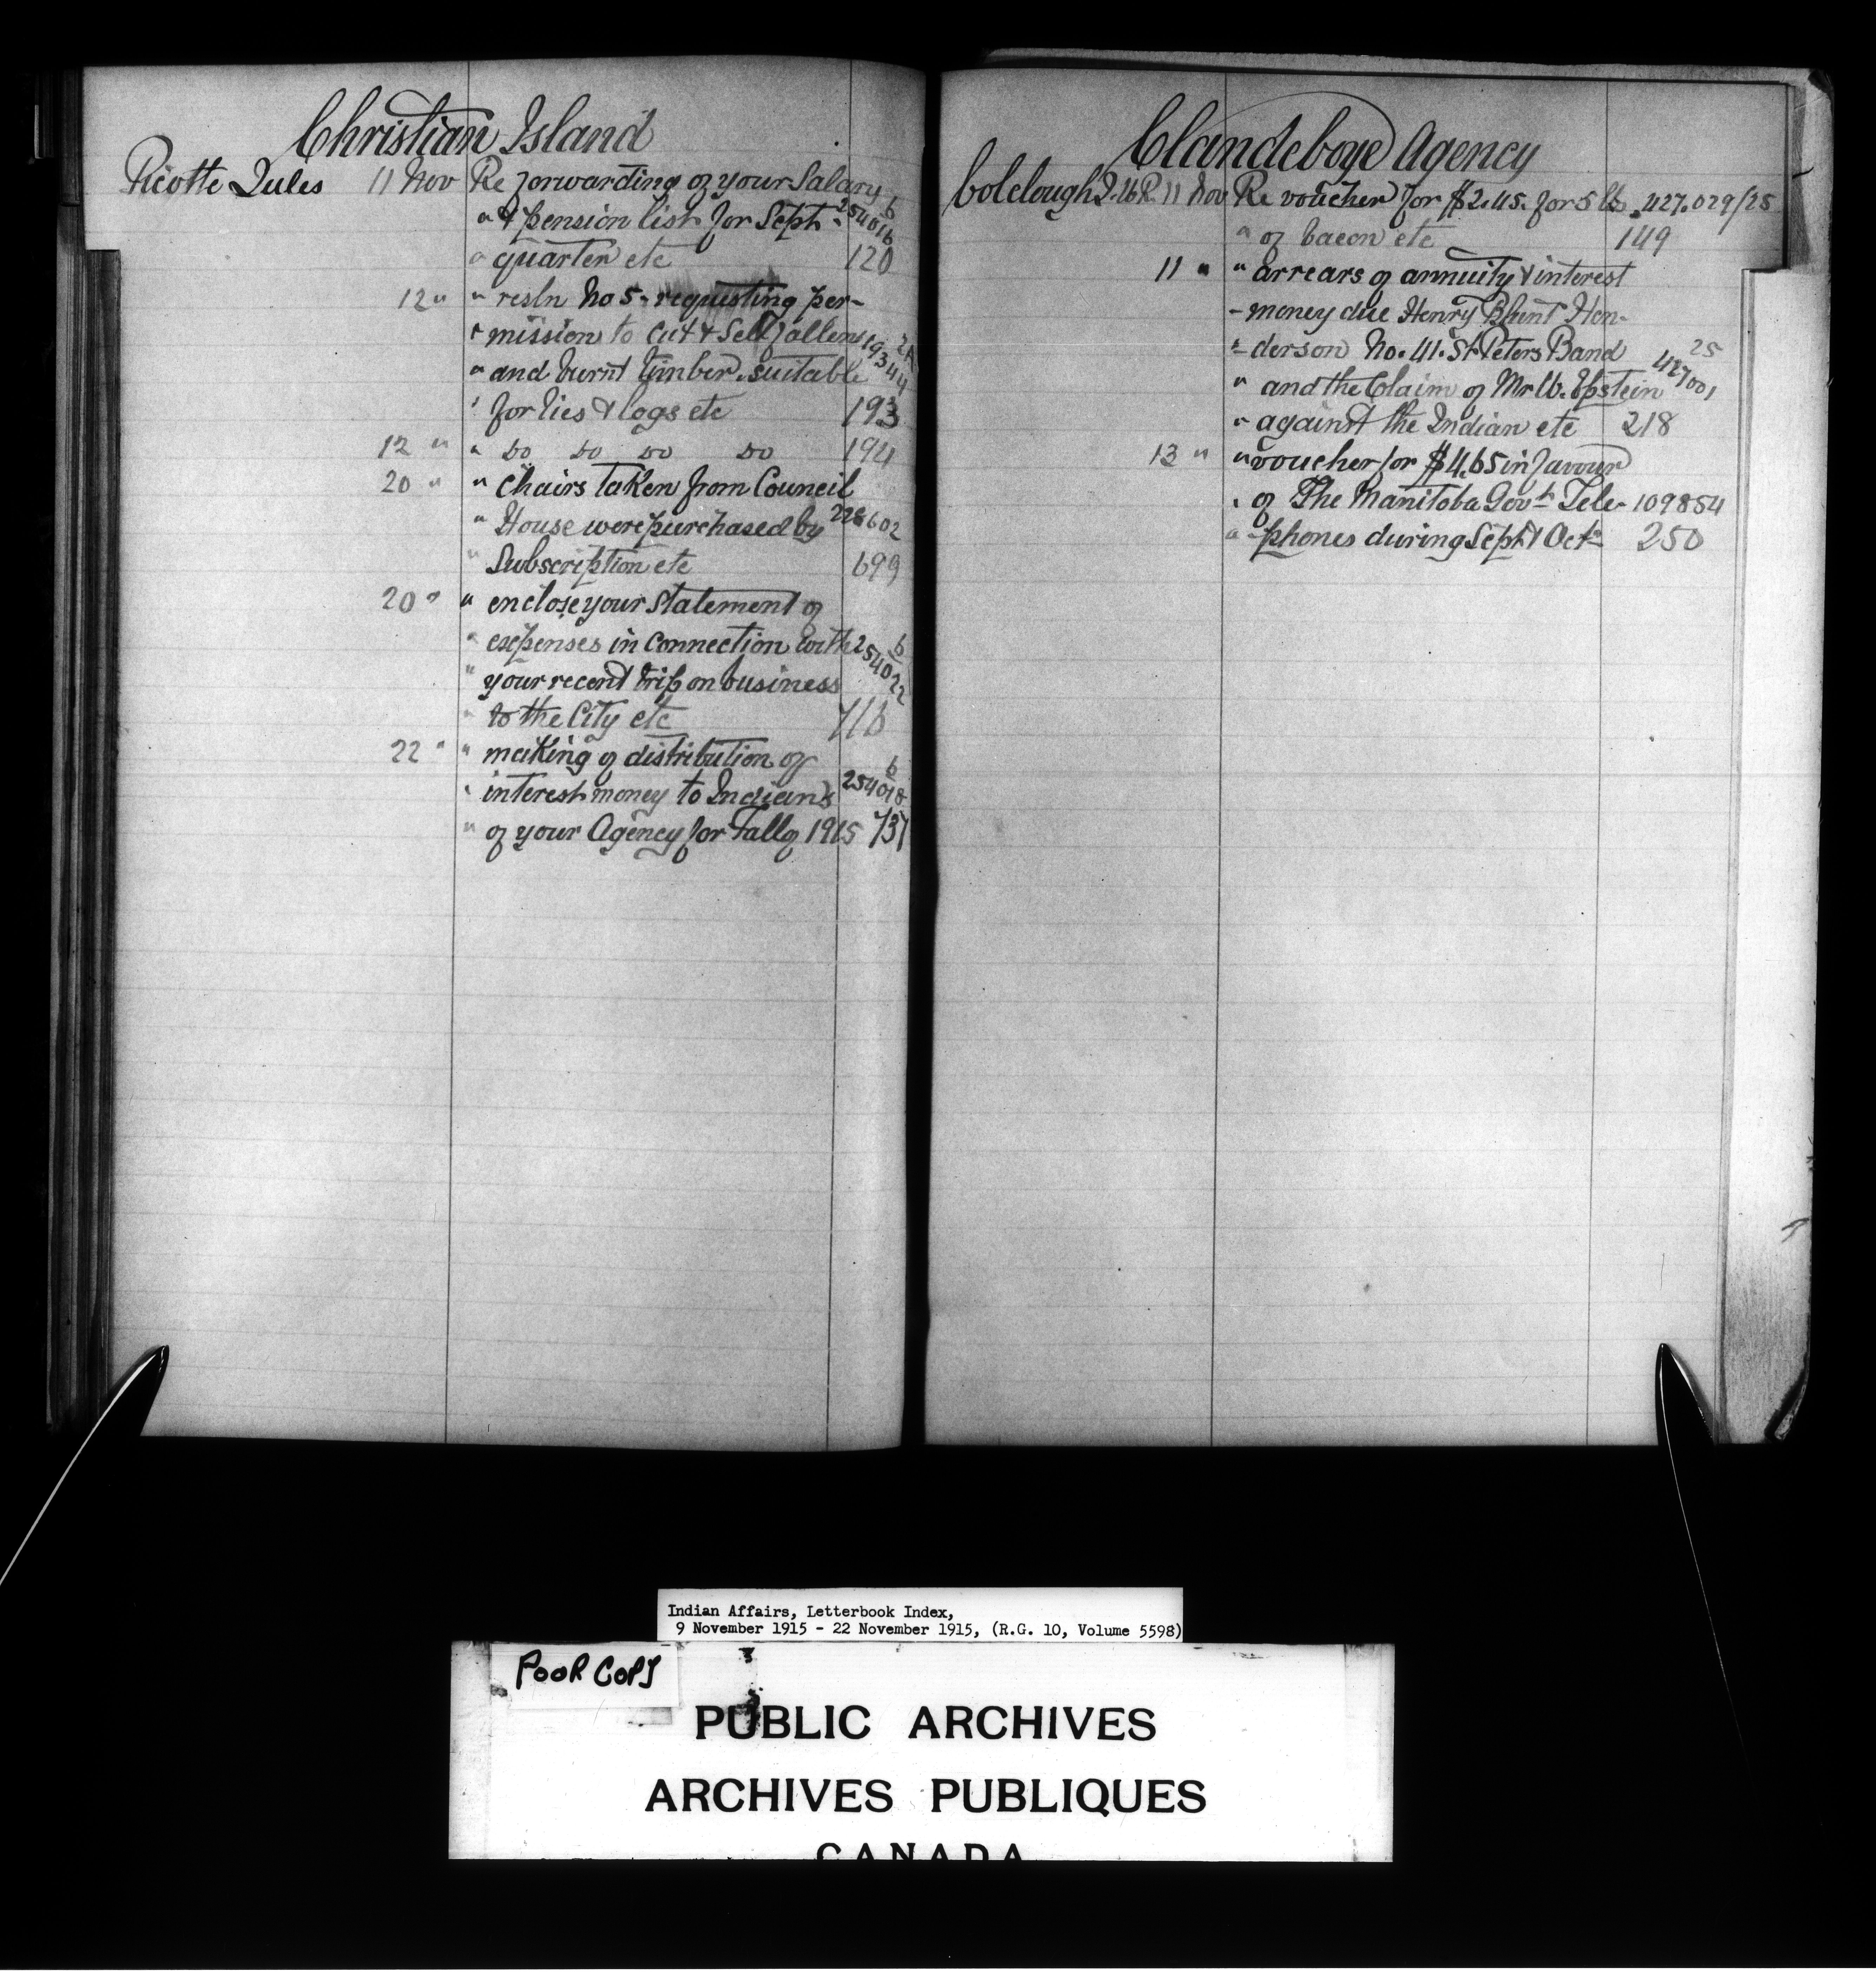 Christian Island
Picotte Jules 11 Nov Re forwarding of your Salary 6
" & pension list for Sept - 254016
" quarter etc 120
12 " " resln No 5 - requesting per-
" mission to cut & Sell fallen 2A
" and burnt timber suitable 19344
" for ties & logs etc 193
12 " " Do Do Do Do 194
20 " " Chairs taken from Council
" House were purchased by 228602
" Subscription etc 699
20 " " enclose your Statement of
" expenses in connection with 6
" your recent trip on business 254022
" to the City etc 716
22 " " making of distribution of 6
" interest money to Indians 254018
" of your Agency for Fall of 1915 737
Clandeboye Agency
Colclough J.W.R. 11 Nov Re voucher for $2.45. for 5 lbs. 427.029/25
" of bacon etc 149
11 " " arrears of annuity & interest
- money due Henry Blunt Hen-
" derson No. 41. St Peters Band 25
" and the Claim of Mr W. Epstein 427001
" against the Indian etc 218
13 " " voucher for $4.65 in favour
" of The Manitoba Govt. Tele- 109854
" - phones during Sept & Oct. 250
Indian Affairs, Letterbook Index,
9 November 1915 - 22 November 1915, (R.G. 10, Volume 5598)
POOR COPY
PUBLIC ARCHIVES
ARCHIVES PUBLIQUES
CANADA